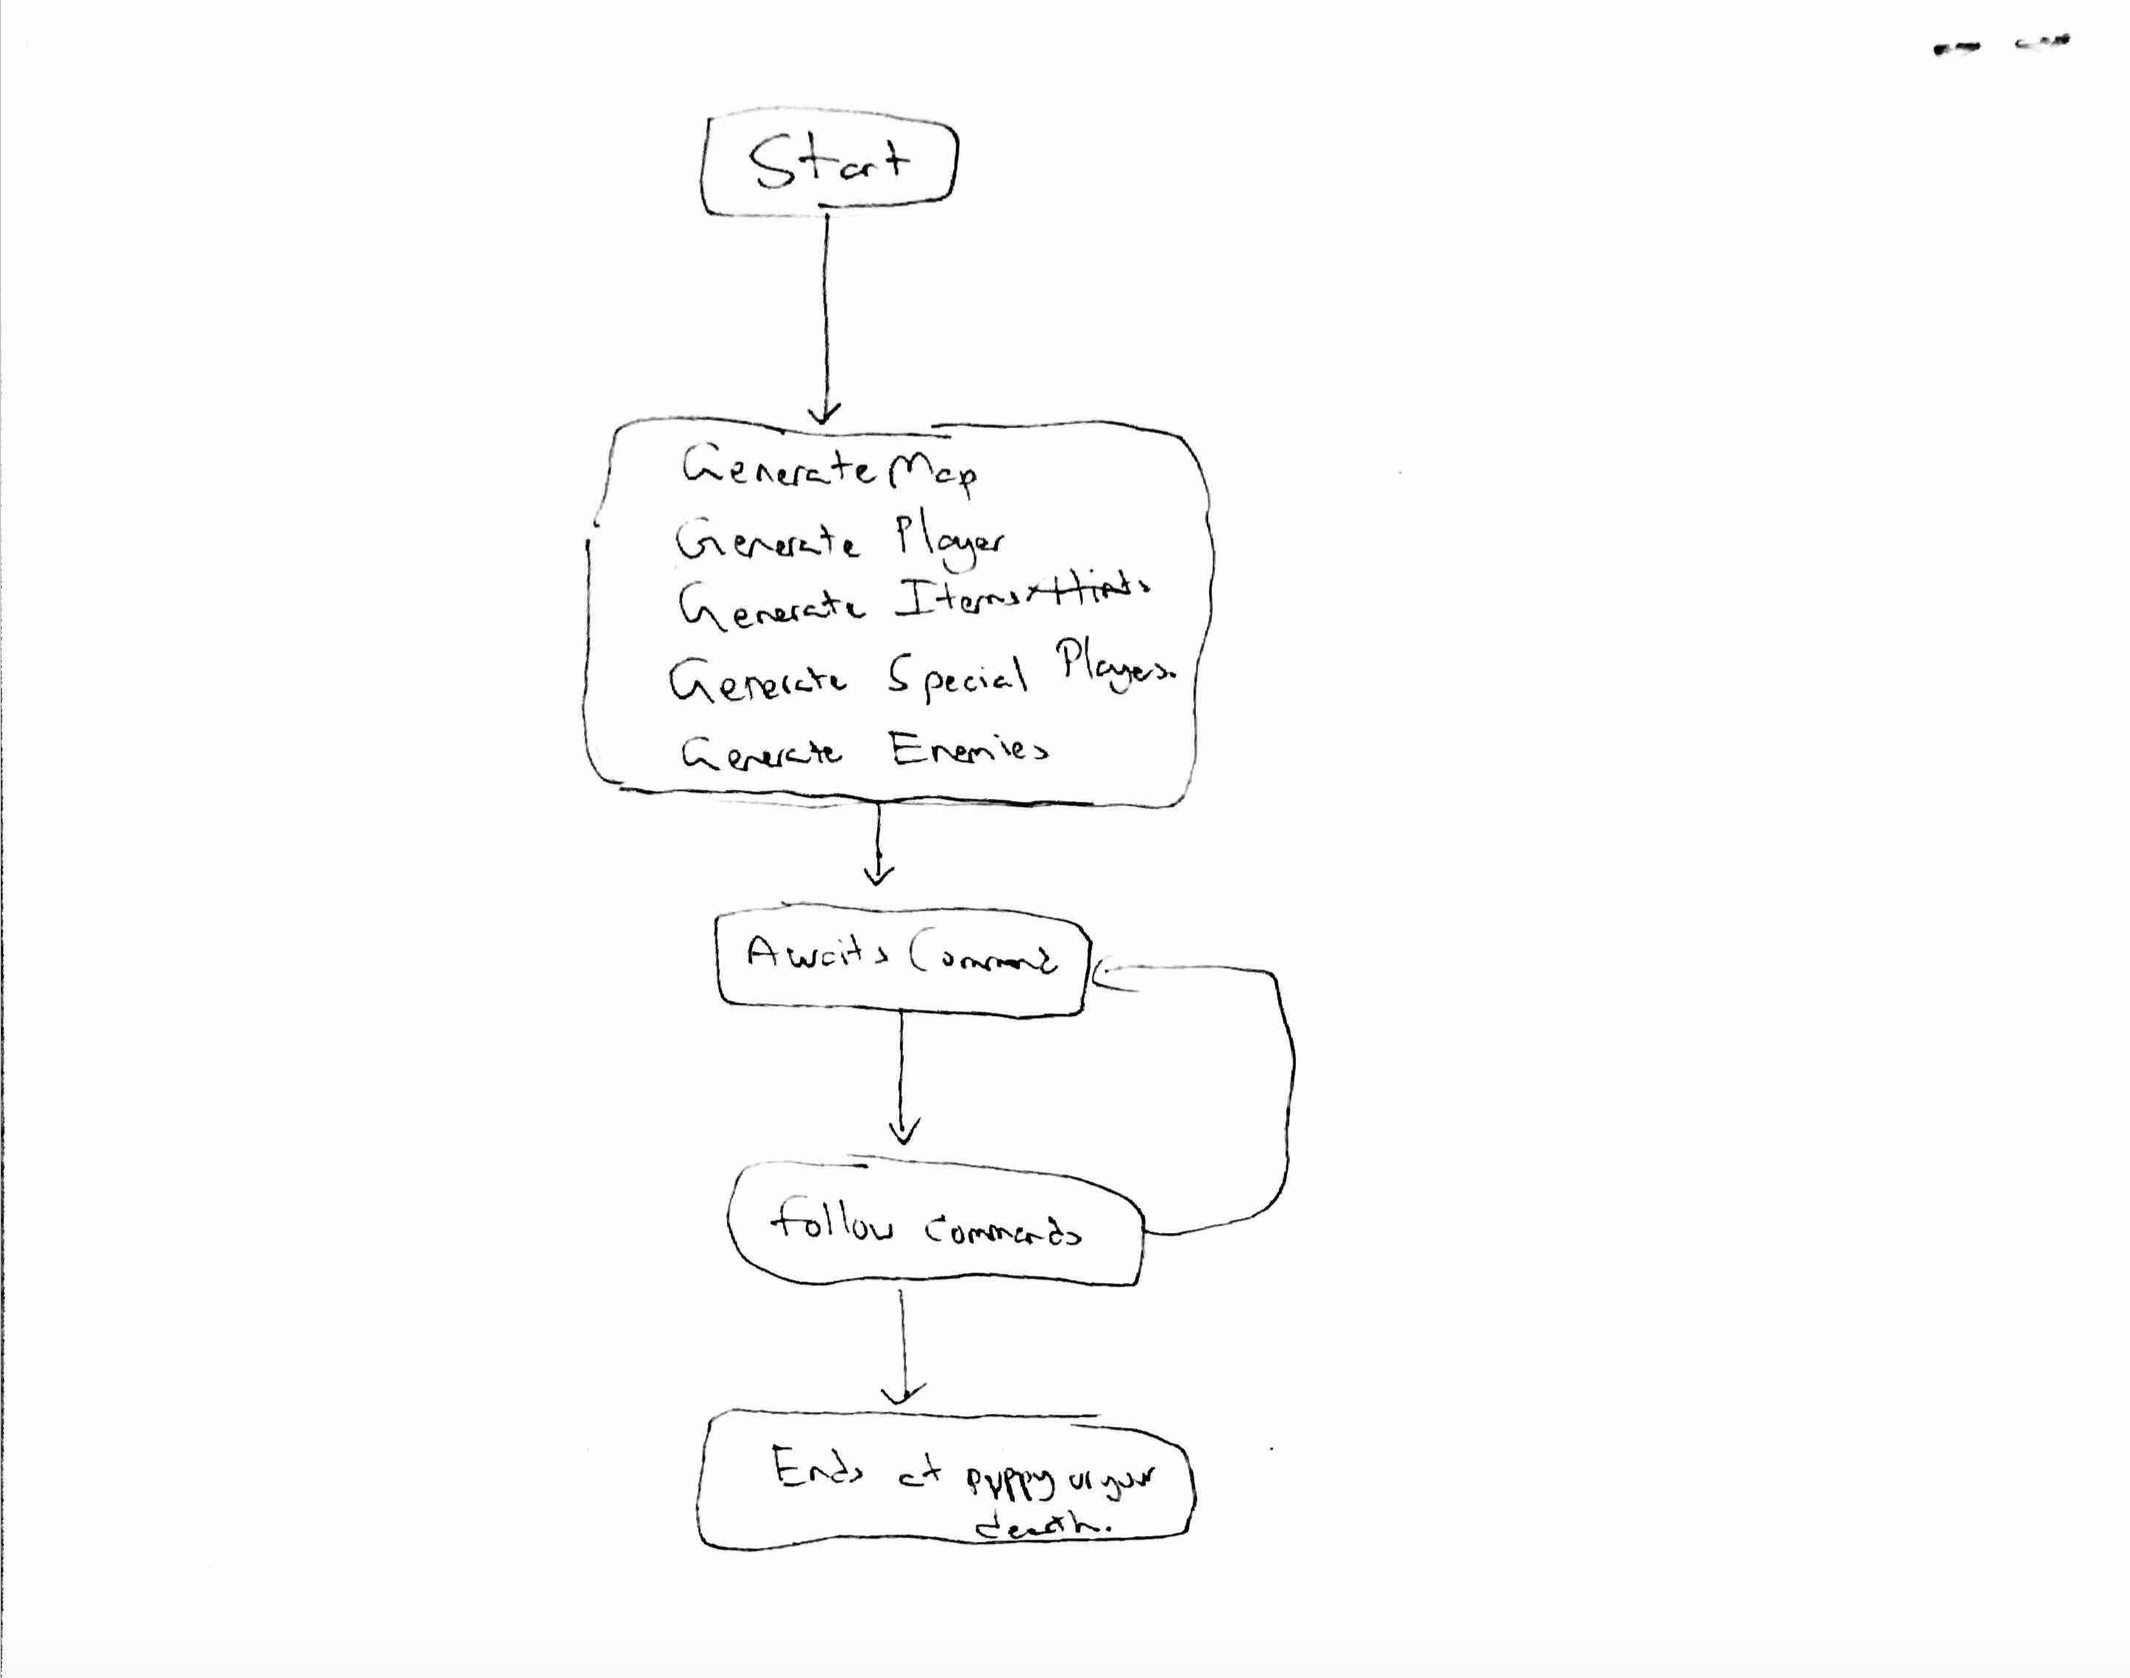 Start
Generate Map
Generate Player
Generate Items + Hints
Generate Special Players.
Generate Enemies
Awaits Command
Follow commands
Ends at puppy or your
death.